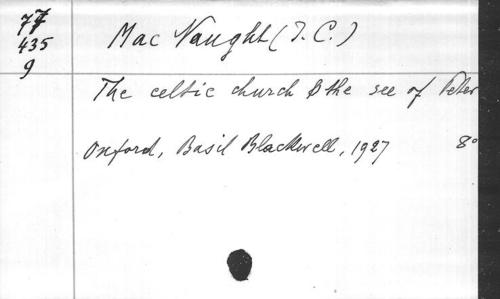 77
435
9
Mac Naught (J. C.)
The celtic church & the see of Peter
Oxford, Basil Blackwell, 1927 8°